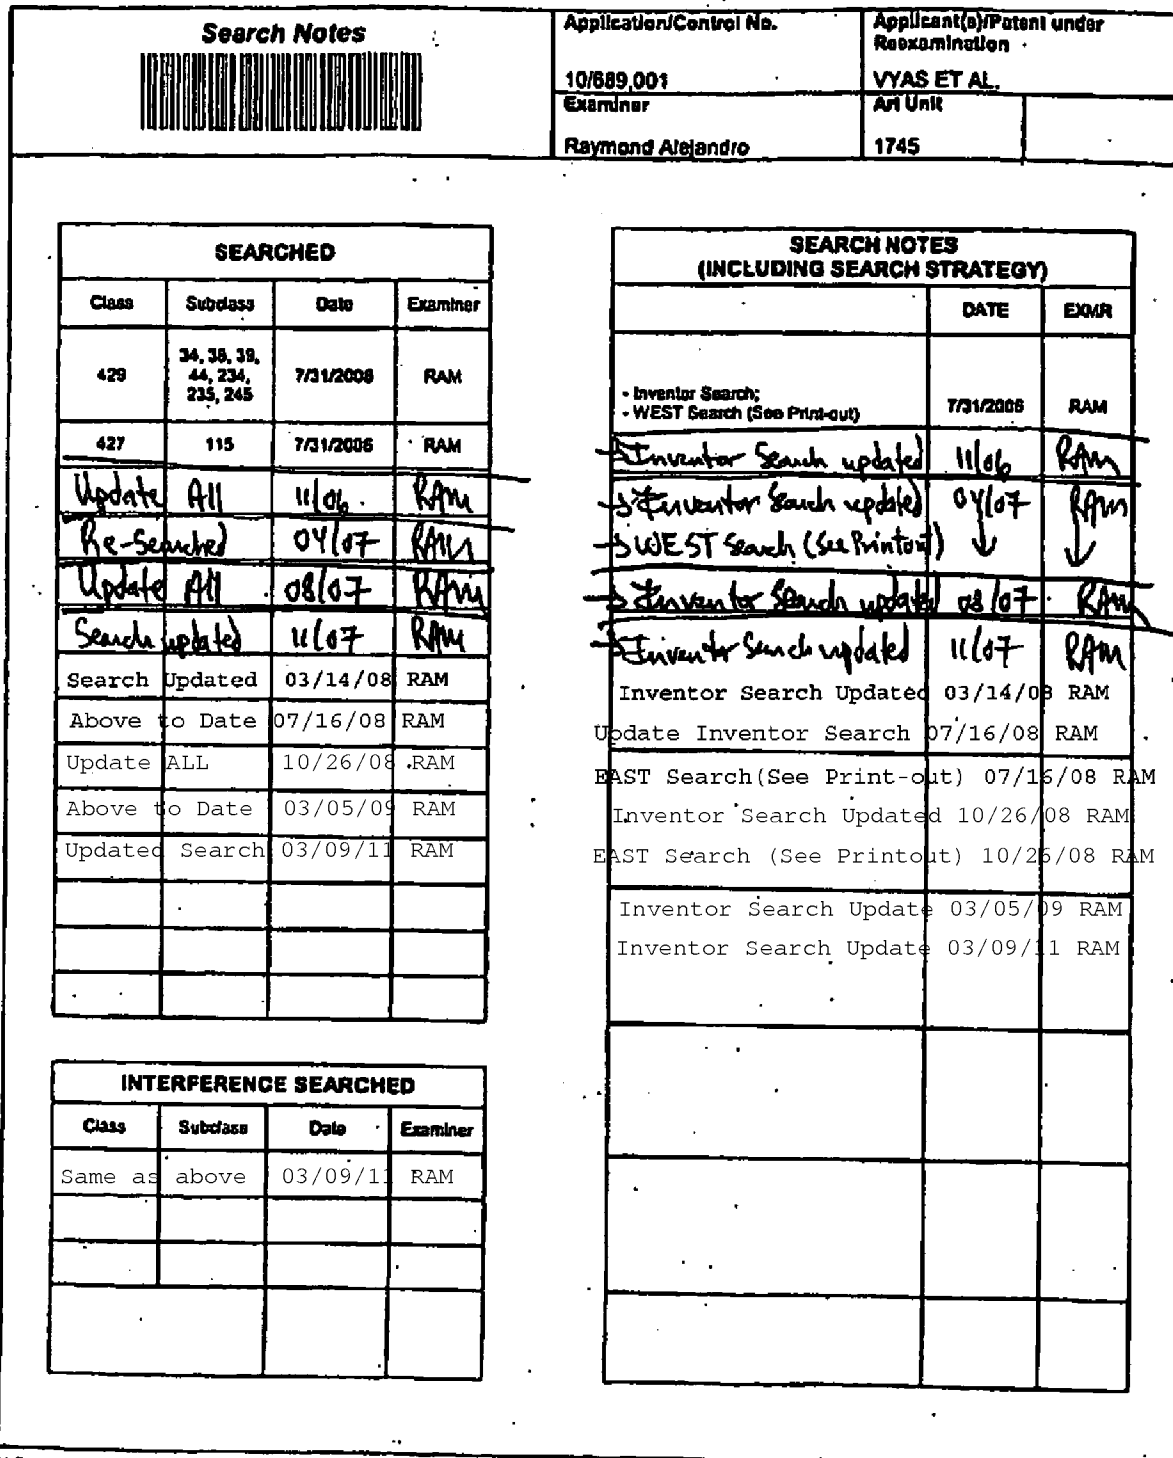 Search Notes
Application/Control No.
10/689,001
Applicant(s)/Patent under
Reexamination
VYAS ET AL.
Examiner
Raymond Alejandro
Art Unit
1745
SEARCHED
Class Subclass Date Examiner
429 34, 38, 39, 44, 234, 235, 245 7/31/2006 RAM
427 115 7/31/2006 RAM
Update All 11/06. RAM
Re-Searched 04/07 RAM
Update All 08/07 RAM
Search updated 11/07 RAM
Search Updated 03/14/08 RAM
Above to Date 07/16/08 RAM
Update ALL 10/26/08 RAM
Above to Date 03/05/09 RAM
Updated Search 03/09/11 RAM
INTERFERENCE SEARCHED
Class Subclass Date Examiner
Same as above 03/09/11 RAM
SEARCH NOTES
(INCLUDING SEARCH STRATEGY)
DATE EXMR
- Inventor Search;
- WEST Search (See Print-out) 7/31/2006 RAM
→ Inventor Search updated 11/06 RAM
→ Inventor Search updated 04/07 RAM
→ WEST Search (See Printout) ↓ ↓
→ Inventor Search updated 08/07. RAM
→ Inventor Search updated 11/07 RAM
Inventor Search Updated 03/14/08 RAM
Update Inventor Search 07/16/08 RAM
EAST Search(See Print-out) 07/16/08 RAM
Inventor Search Updated 10/26/08 RAM
EAST Search (See Printout) 10/26/08 RAM
Inventor Search Update 03/05/09 RAM
Inventor Search Update 03/09/11 RAM